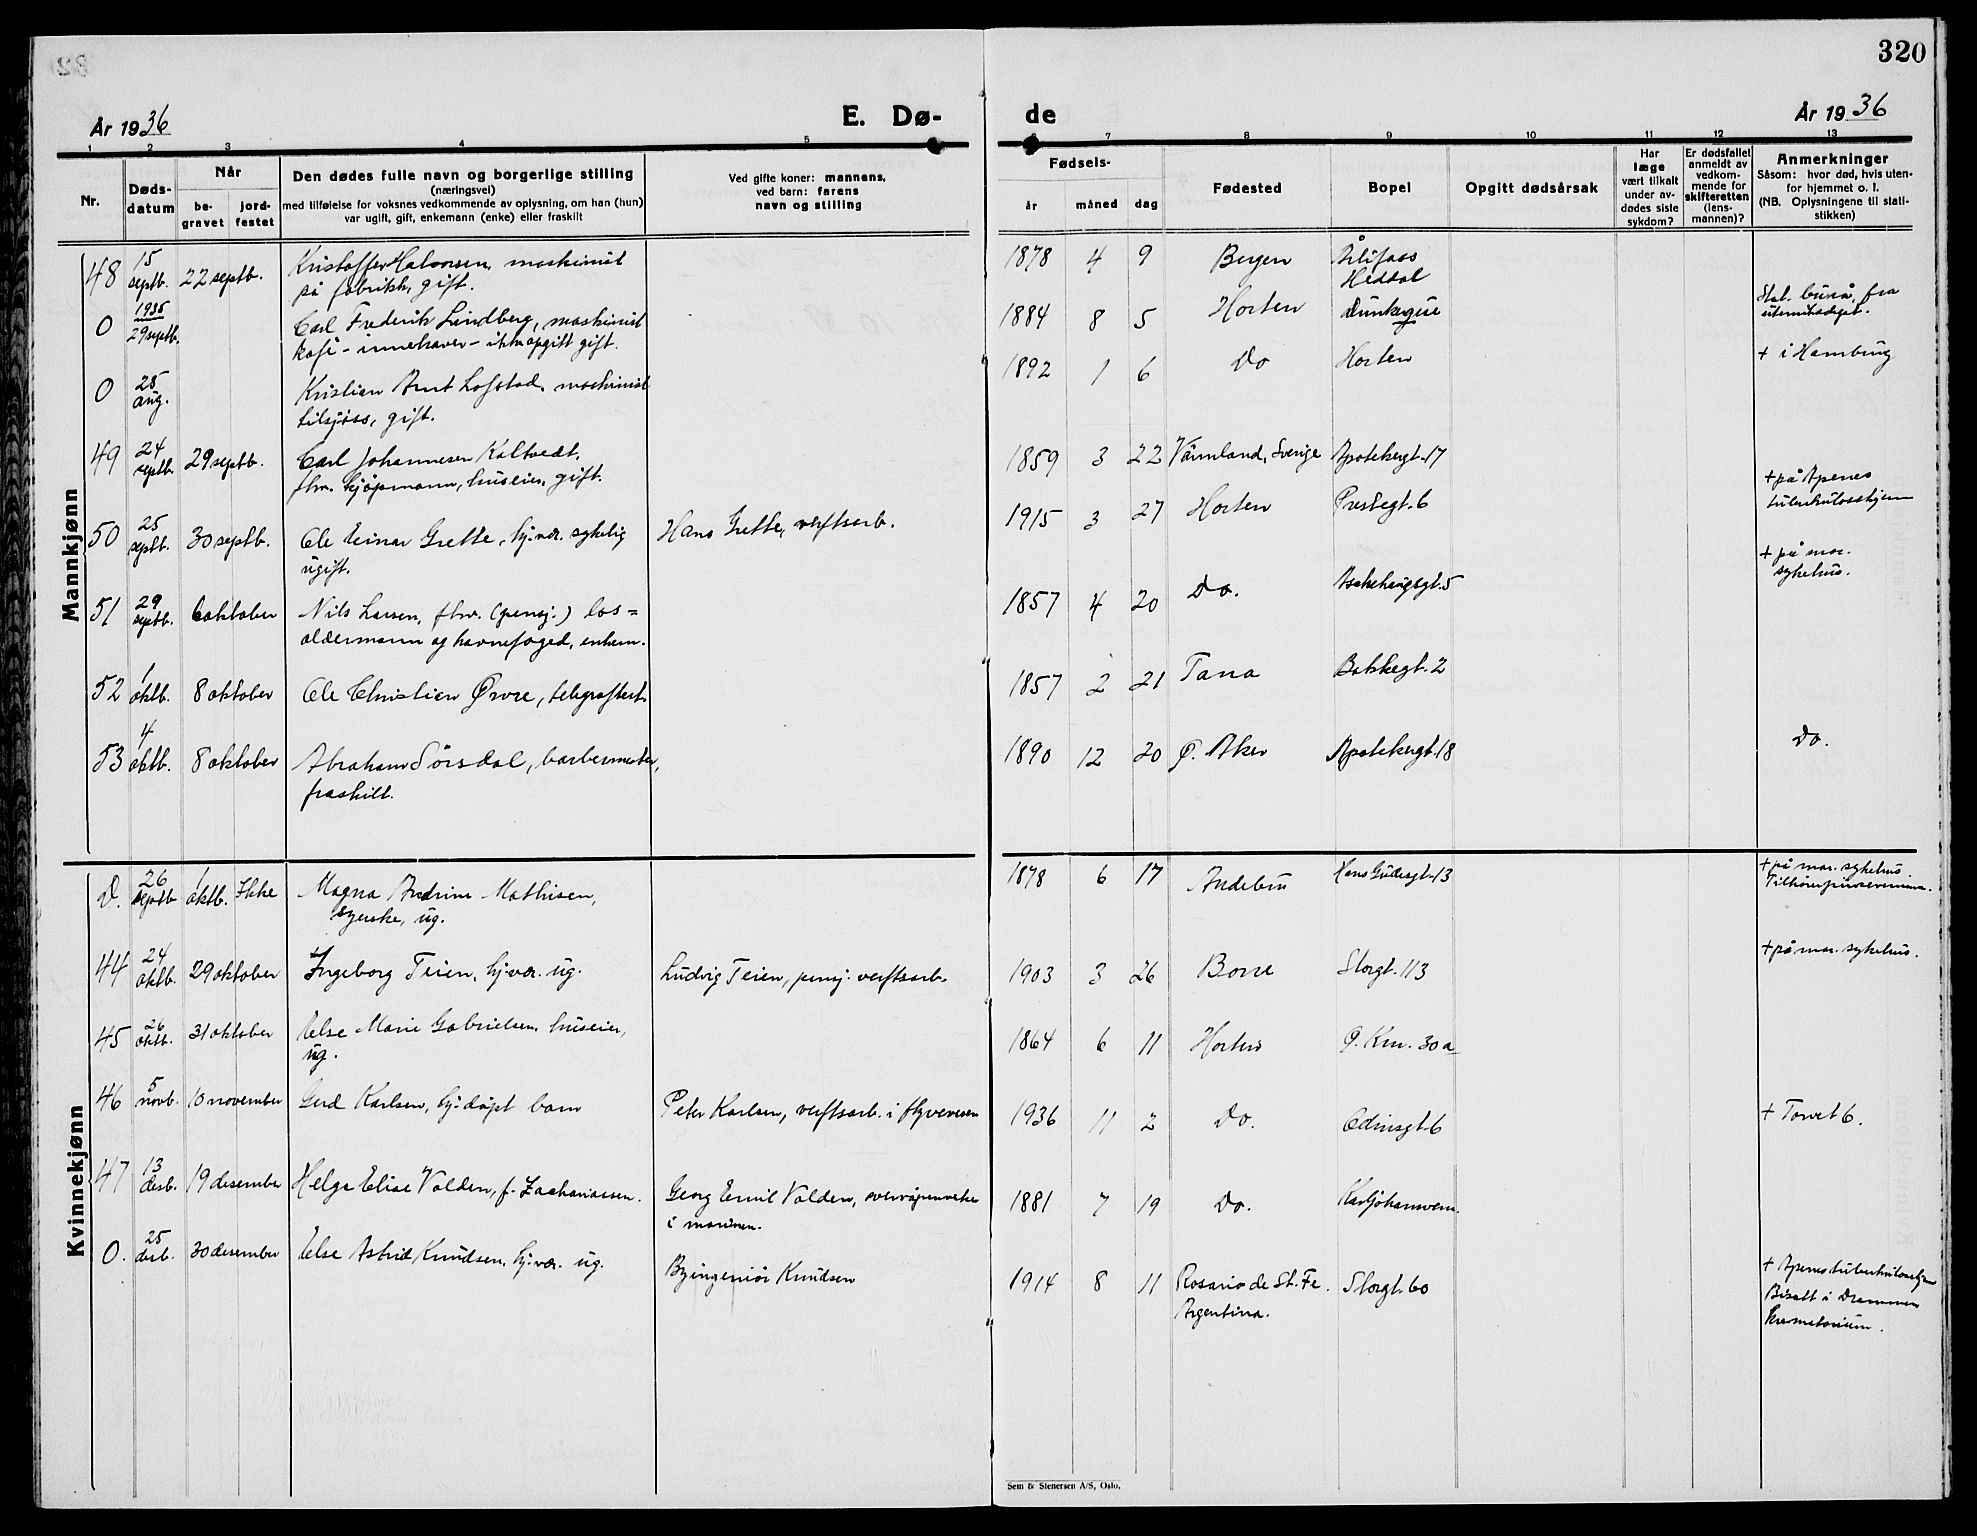 320
År 1936
E. Dø-
de
År 1936
1 2 3 4 5
6 7 8 9 10 11 12 13
Nr.
Døds-
datum
Når
be-
gravet
jord-
festet
Den dødes fulle navn og borgerlige stilling
(næringsvei)
med tilføielse for voksnes vedkommende av oplysning, om han (hun)
var ugift, gift, enkemann (enke) eller fraskilt
Ved gifte koner: mannens,
ved barn: farens
navn og stilling
Fødsels-
år måned dag
Fødested
Bopel
Opgitt dødsårsak
Har
læge
vært tilkalt
under av-
dødes siste
sykdom?
Er dødsfallet
anmeldt av
vedkom-
mende for
skifteretten
(lens-
mannen)?
Anmerkninger
Såsom: hvor død, hvis uten-
for hjemmet o. l.
(NB. Oplysningene til stati-
stikken)
Mannkjønn
48 15 septb. 22 septb. Kristoffer Halvorsen, maskinist
på fabrikk, gift.
1878 4 9 Bergen
Heddal
0 1935 29 septb. Carl Frederik Lindberg, maskinist
kafé-innehaver - ikke opgitt gift.
1884 8 5 Horten Dunkerque
Stat. byrå, fra
0 25 aug. Kristian Arnt Lofstad, maskinist
tilsjøss, gift.
1892 1 6 Do Horten + i Hamburg
49 24 septb. 29 septb. Carl Johannesen Kaltvedt,
fhv. kjøpmann, huseier, gift.
1859 3 22 Värmland, Sverige Apotekergt. 17
50 25 septb. 30 septb. Ole Einar Grette, hj.vær. sykelig
ugift.
Hans Grette, verftsarb.
1915 3 27 Horten Prestegt. 6
+ på Apenes
tuberkulosehjem
51 29 septb. 6 oktober Nils Larsen, fhv. (pensj.) los=
oldermann og havnefoged, enkem.
1857 4 20 Do. Aschehougsgt. 5
+ på mar.
sykehus.
52 1 oktb. 8 oktober Ole Christian Ørvre, telegrafbest.
1857 2 21 Tana Bakkegt. 2
53 4 oktb. 8 oktober Abraham Sørsdal, barbermester,
fraskilt.
1890 12 20 Ø. Aker Apotekergt. 18 Do.
Kvinnekjønn
D. 26 septb 1 oktb. Ikke Magna Andrine Mathisen,
syerske, ug.
1878 6 17 Andebu Hans Gudesgt. 13
+ på mar. sykehus.
44 24 oktb. 29 oktober Ingeborg Teien, hj.vær. ug.
Ludvig Teien, pensj. verftsarb.
1903 3 26 Borre Storgt. 113
+ på mar. sykehus.
45 26 oktb. 31 oktober Else Marie Gabrielsen, huseier,
ug.
1864 6 11 Horten 30a
46 5 novb. 10 november Gerd Karlsen, hj.døpt barn
Peter Karlsen, verftsarb. i flyvevesen
1936 11 2 Do. Odinsgt. 6 + Torvet 6.
47 13 desb. 19 desember Helga Elise Volden, f. Zachariassen.
Georg Emil Volden,
i marinen.
1881 7 19 Do. Karljohansvern.
0. 25 desb. 30 desember Else Astrid Knudsen, hj.vær. ug.
Byingeniør Knudsen
1914 8 11 Rosario de St. Fe.
Argentina.
Storgt. 60
+ Apenes tuberkulosehjem
Bisatt i Drammen
krematorium.
Sem & Stenersen A/S, Oslo.